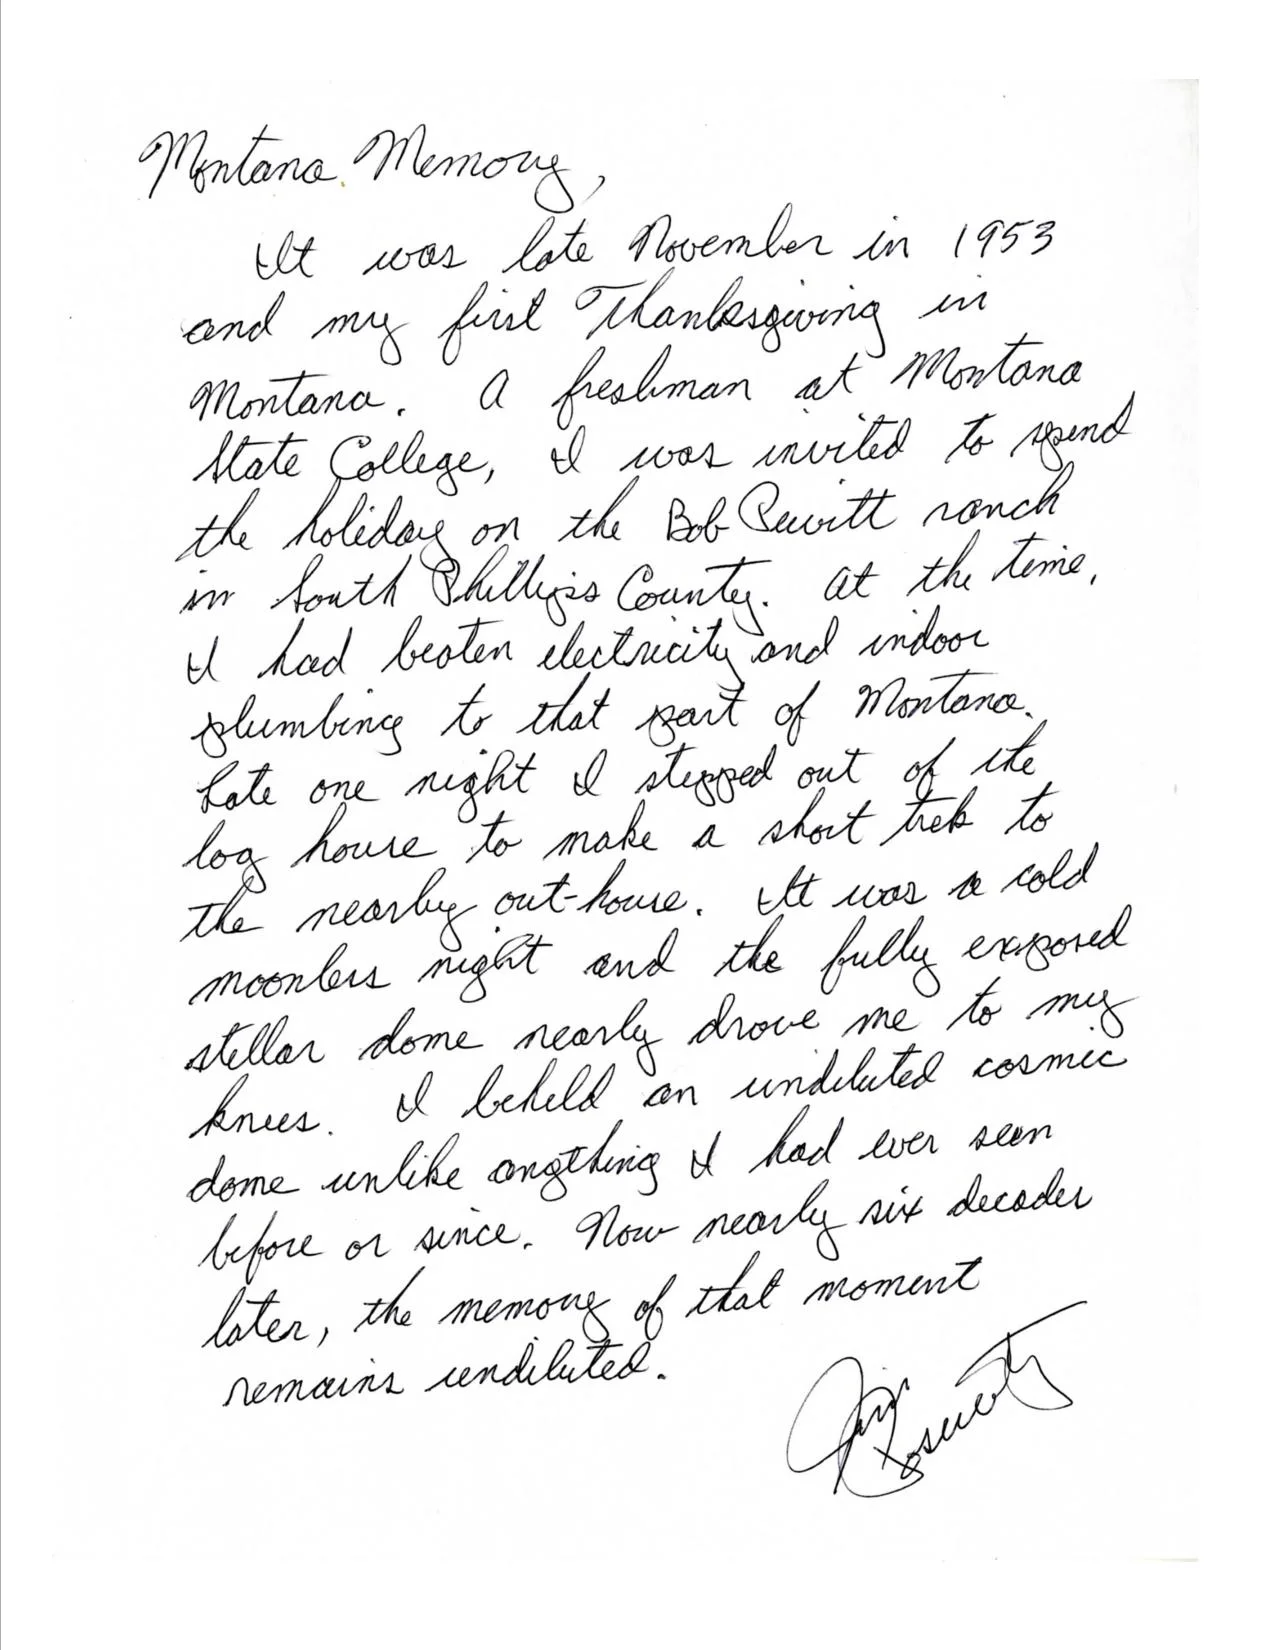 Montana Memory,
It was late November in 1953
and my first Thanksgiving in
Montana. A freshman at Montana
State College, I was invited to spend
the holiday on the Bob Pewitt ranch
in South Phillips County. At the time,
I had beaten electricity and indoor
plumbing to that part of Montana.
Late one night I stepped out of the
log house to make a short trek to
the nearby out-house. It was a cold
moonless night and the fully exposed
stellar dome nearly drove me to my
knees. I beheld an undiluted cosmic
dome unlike anything I had ever seen
before or since. Now nearly six decades
later, the memory of that moment
remains undiluted.
Jim